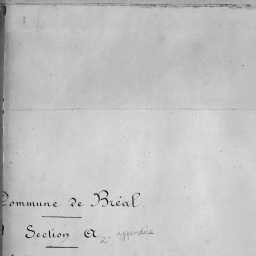 Commune de Bréal
Section A 2. appendice